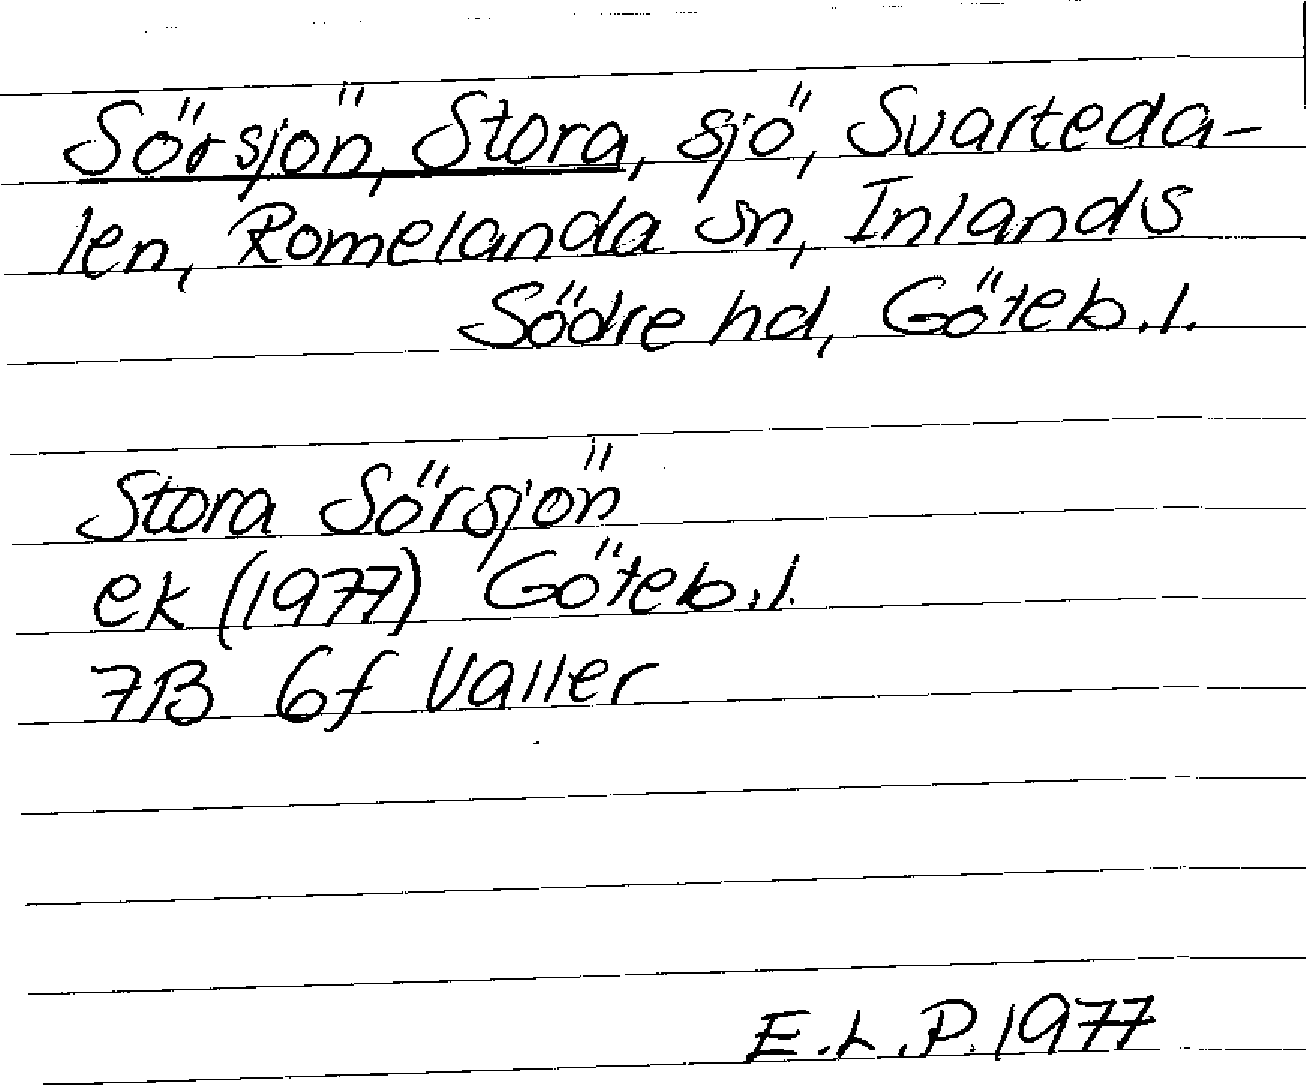 Sörsjön, Stora, sjö, Svarteda-
len, Romelanda sn, Inlands
Södre hd, Göteb.l.
Stora Sörsjön
ek (1977) Göteb.l.
7B 6f Valler
E.L.P. 1977